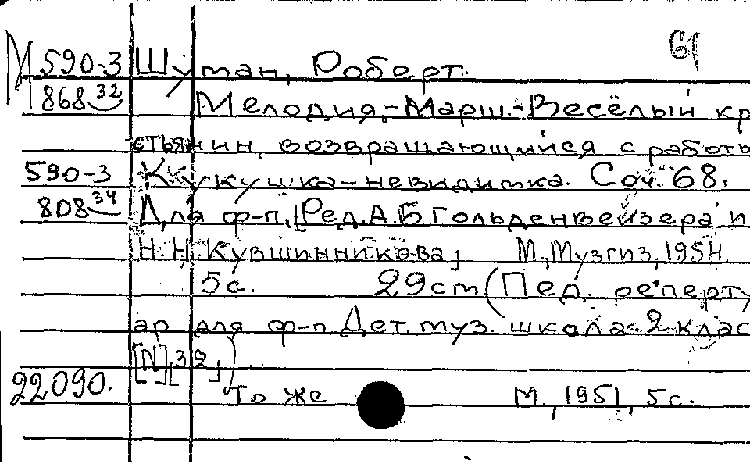 61
М 590-3 Шуман, Роберт.
868 32 Мелодия.-Марш.-Весёлый кр
естьянин, возвращающийся с работы
590-3 Кукушка-невидимка. Соч. 68.
808 34 Для ф-п. [Ред. А.Б. Гольденвейзера и
Н.Н. Кувшинникова] М., Музгиз, 1954
5с. 29см (Пед. реперту
ар для ф-п. Дет. муз. школа. 2 клас
[N], 32,)
22090. То же М., 1951, 5с.